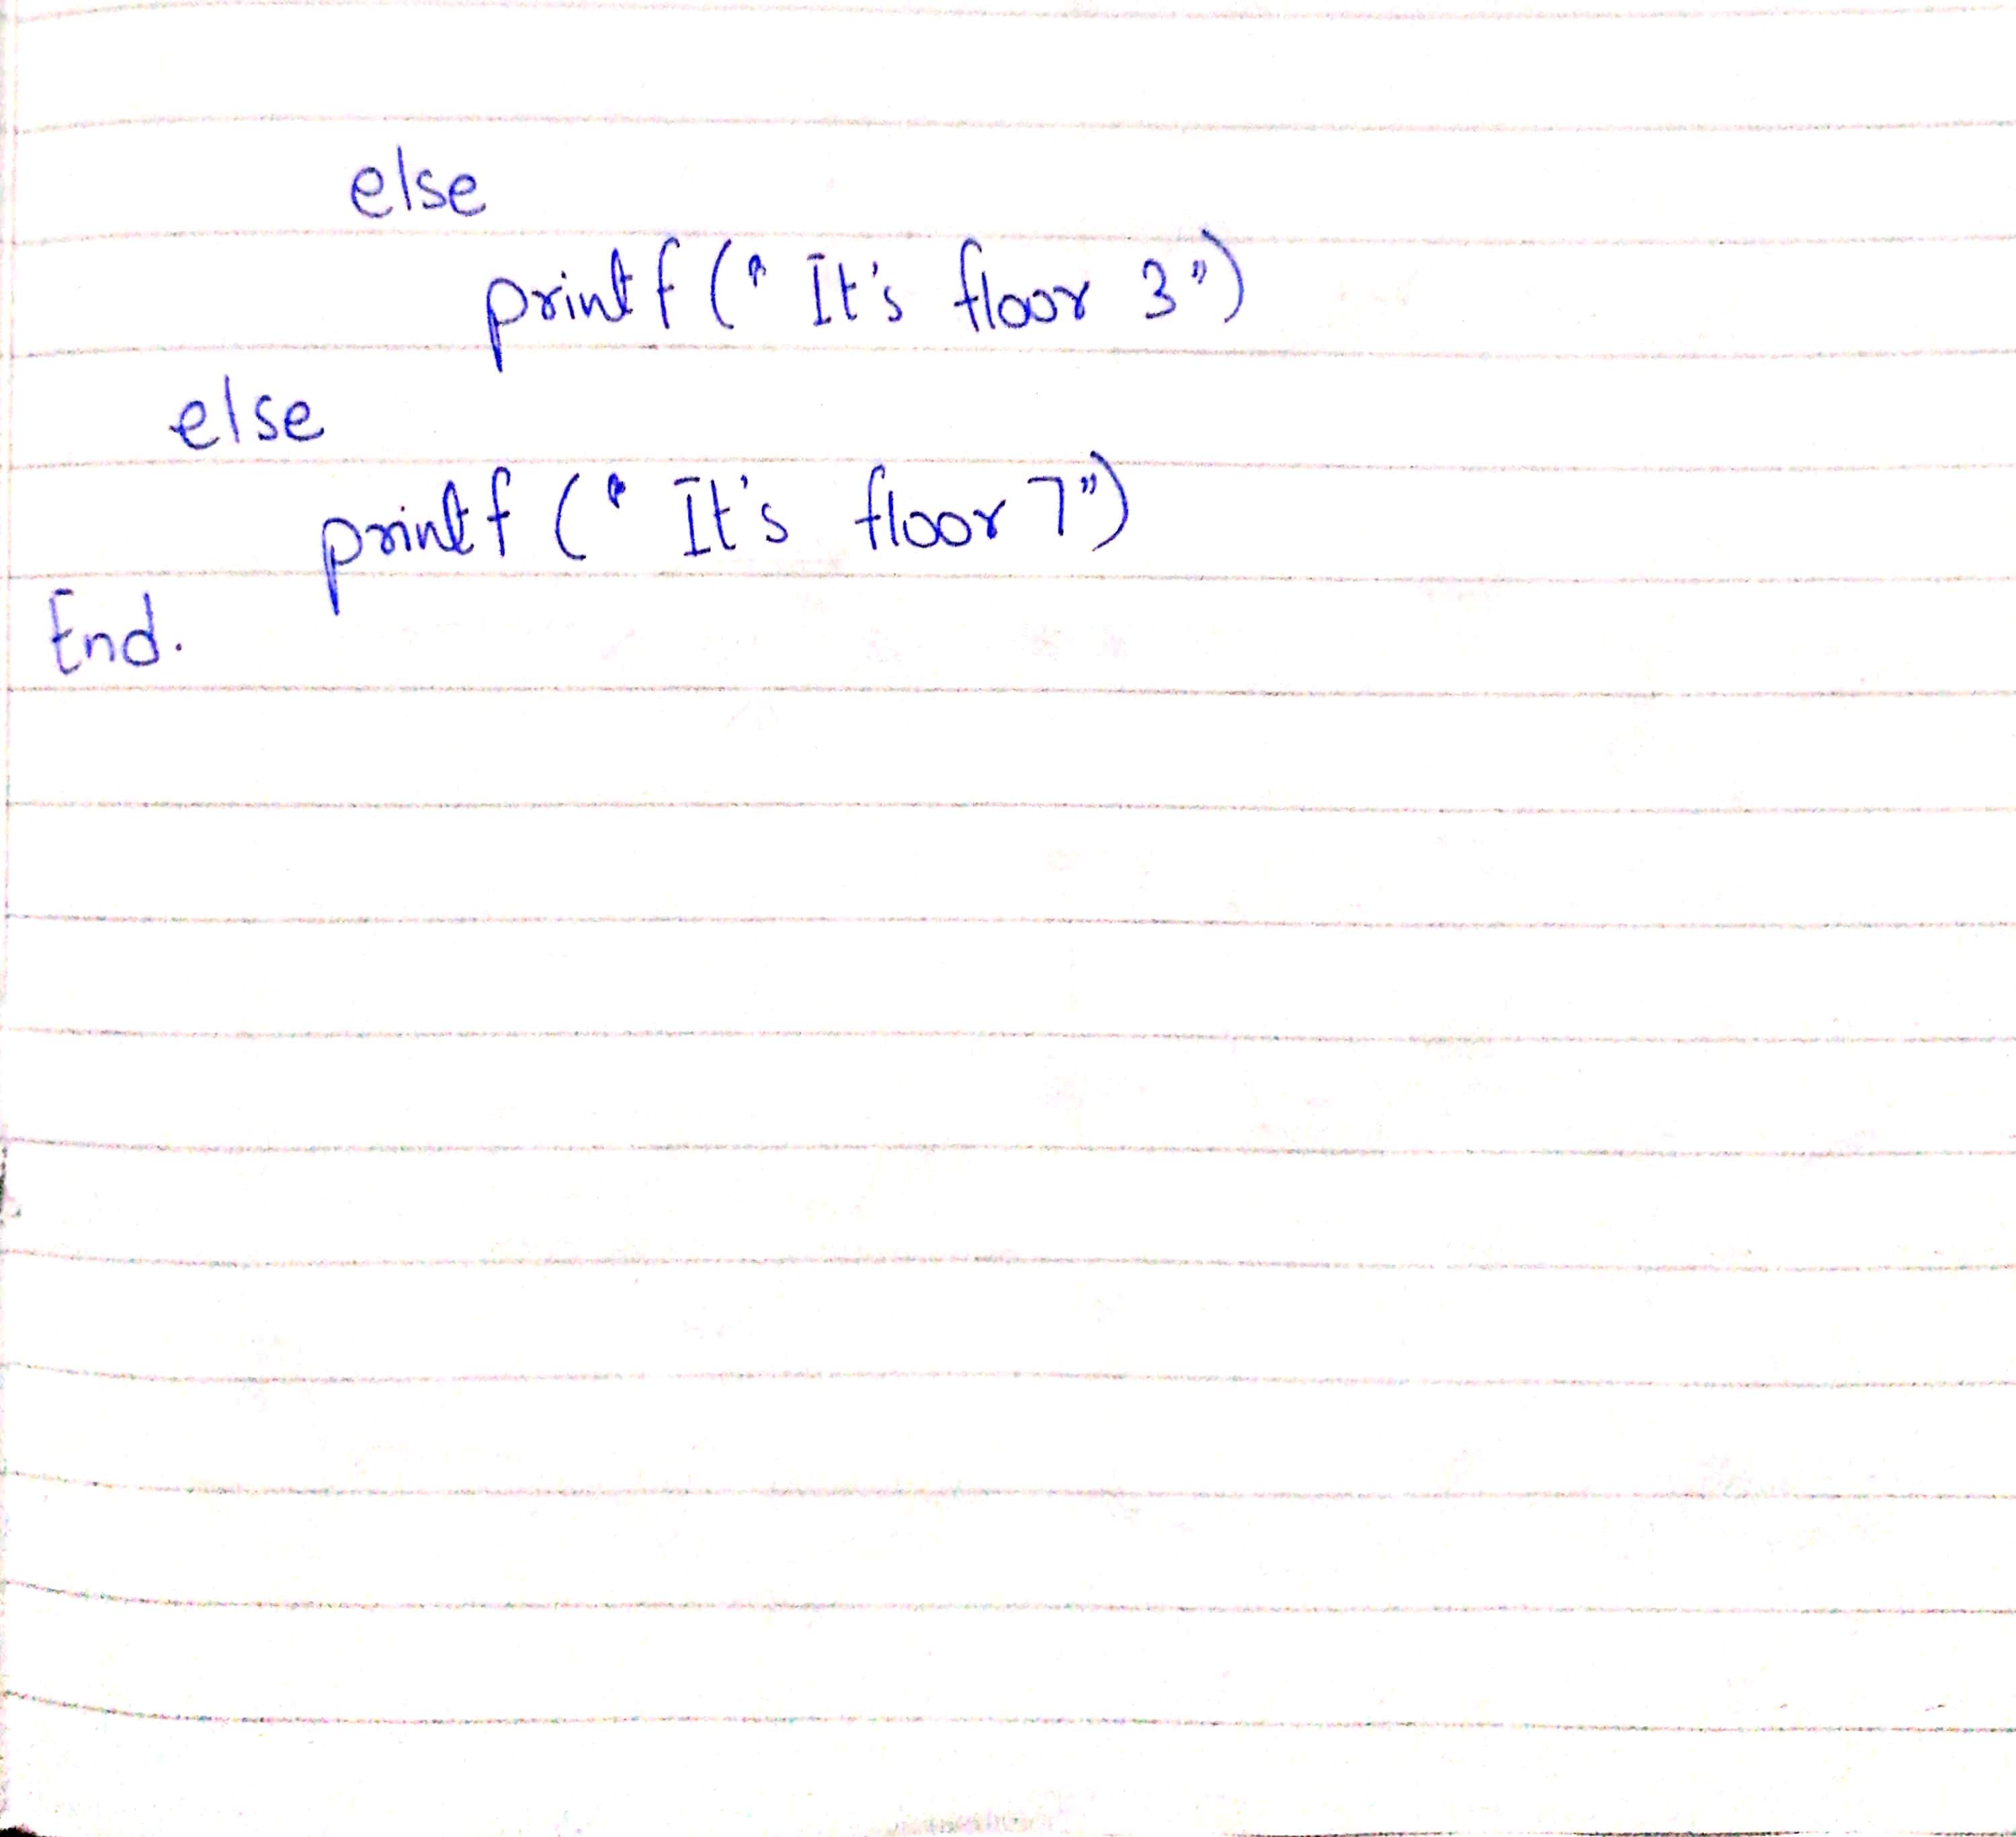 else
printf (" It's floor 3")
else
printf (" It's floor 7")
End.